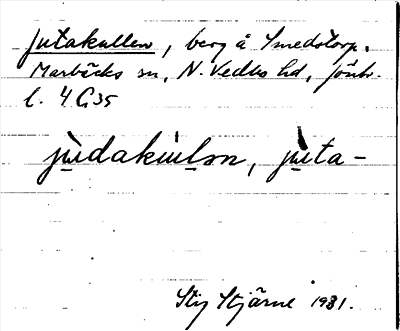 Jutakullen, berg å Smedstorp,
Marbäcks sn, N. Vedbo hd, Jönk.
l. 4 G 35
jùdakùlsn, jùta-
Stig Stjärne 1931.